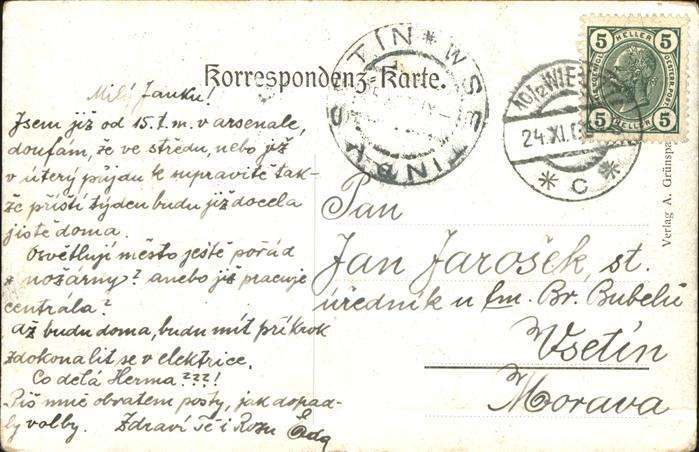 Korrespondenz-Karte.
WSETIN * WSETIN *
10/2 WIEN
24.XI.
* C *
5 HELLER 5
5 HELLER 5
Verlag A. Grünspa
Milý Janku!
Jsem již od 15.t.m. v arsenale,
doufám, že ve středu, nebo již
v úterý půjdu k supravitě tak-
že příští týden budu již docela
jistě doma.
Osvětlují město ještě pořád
"nožárny"? anebo již pracuje
centrála?
Až budu doma, budu mít príkrok
zdokonalit se v elektrice.
Co dělá Herma???!
Piš mně obratem pošty, jak dopad-
ly volby. Zdraví Tě i Rozu
Pan
Jan Jarošek, st.
úředník u fm. Br. Bubelů
Vsetín
Morava